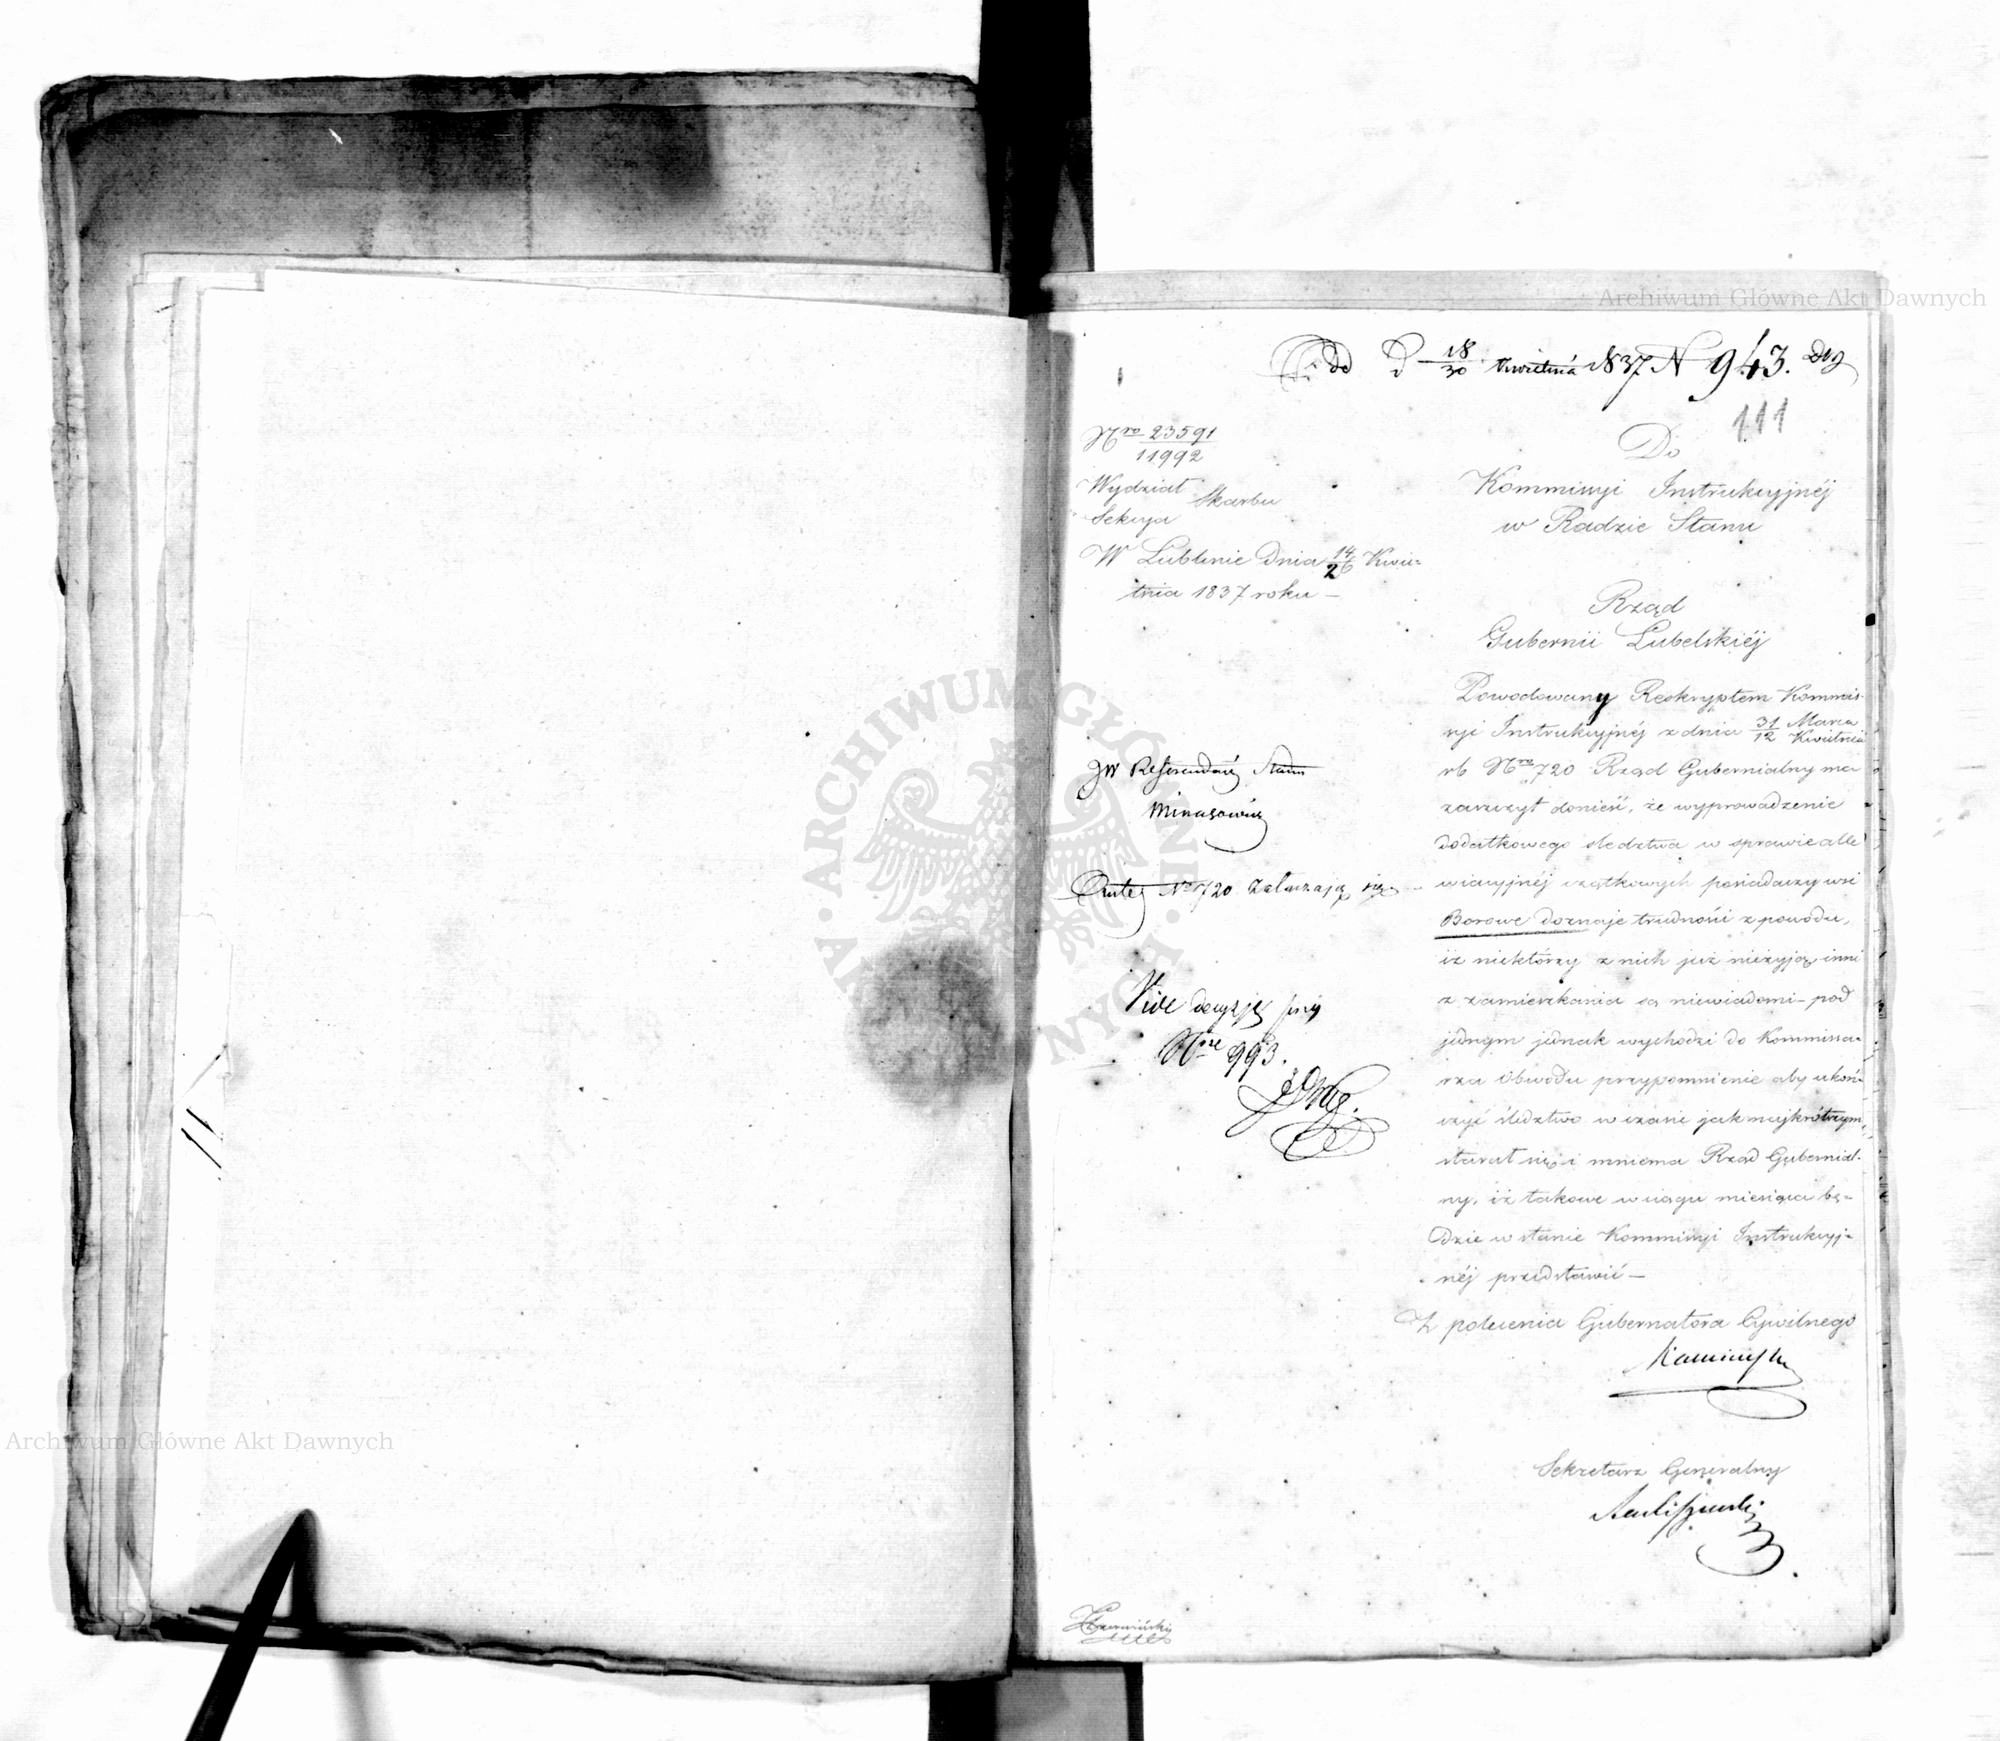 Archiwum Główne Akt Dawnych
d 18/30 Kwietnia 1837 N 943.
111
Nro 23591/11992
Wydział Skarbu
Sekcya
W Lublinie Dnia 14/26 Kwie=
tnia 1837 roku —
Do
Kommissyi Instrukcyjnéj
w Radzie Stanu
Rząd
Gubernii Lubelskiéj
Powodowany Reskryptem Kommis-
syi Instrukcyjnéj z dnia 31 Marca/12 Kwietnia
rb Nro 720 Rząd Gubernialny ma
zaszczyt donieść, że wyprowadzenie
dodatkowego śledztwa w sprawie alle
wiacyjnéj cząstkowych posiadaczy wsi
Borowe doznaje trudności z powodu,
iż niektórzy z nich już nieżyją, inni
z zamieszkania są niewiadomi — pod
jednym jednak wychodzi do Kommissa=
rza Obwodu przypomnienie aby ukoń=
czyć śledztwo w czasie jak najkrótszym
starał się, i mniema Rząd Gubernial-
ny, iż takowe w ciągu miesiąca bę=
dzie w stanie Kommissyi Instrukcyj=
néj przedstawić —
Z polecenia Gubernatora Cywilnego
Sekretarz Generalny
JW Referendarz Stanu
Minasowicz
Nro 720 załączają się
Vide decyzję przy
Nrze 993.
ARCHIWUM GŁÓWNE AKT DAWNYCH
Archiwum Główne Akt Dawnych